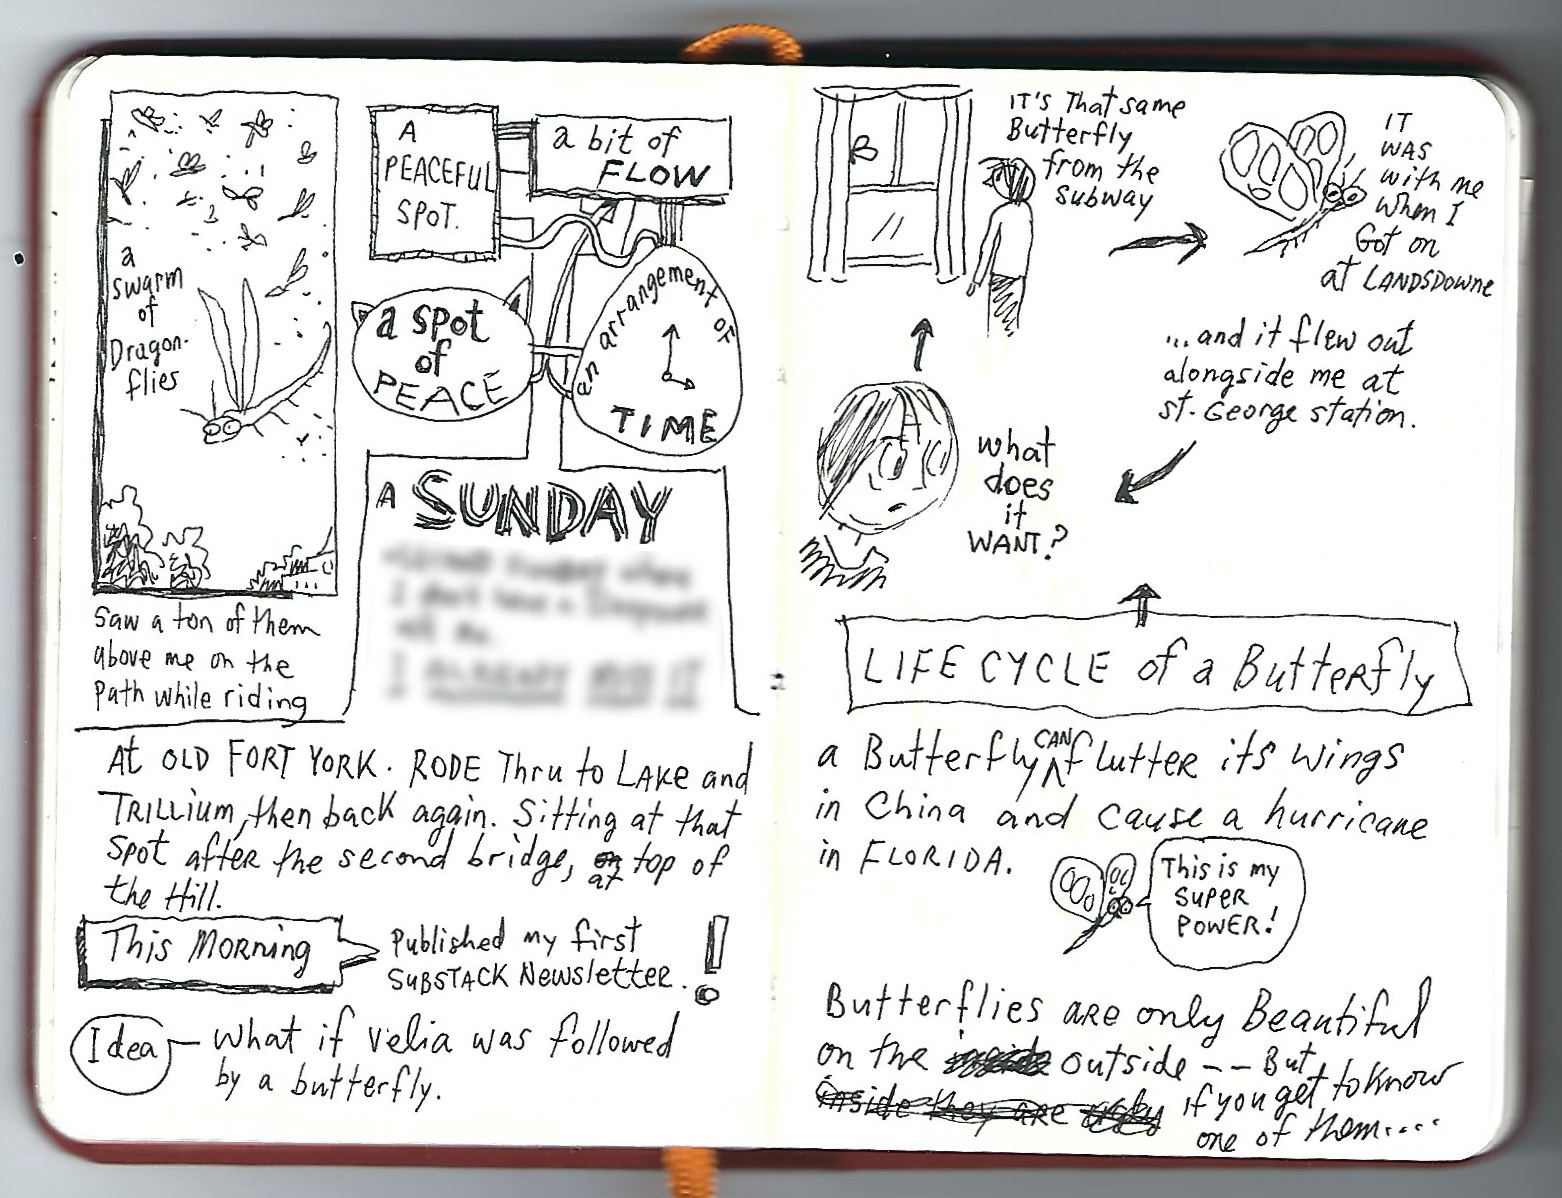 a
swarm
of
Dragon-
flies
Saw a ton of them
above me on the
Path while riding
A
PEACEFUL
SPOT.
a bit of
FLOW
a spot
of
PEACE
an arrangement of
TIME
A SUNDAY
At OLD FORT YORK. RODE Thru to LAKE and
TRILLIUM, then back again. Sitting at that
Spot after the second bridge, at top of
the Hill.
This MORNING
Published my first
SUBSTACK Newsletter. !
Idea
What if Velia was followed
by a butterfly.
IT'S That same
Butterfly
from the
subway
IT
WAS
with me
When I
Got on
at LANDSDOWNE
...and it flew out
alongside me at
St. George station.
what
does
it
WANT?
LIFE CYCLE of a Butterfly
a Butterfly CAN flutter its wings
in China and cause a hurricane
in FLORIDA.
This is my
SUPER
POWER!
Butterflies are only Beautiful
on the outside -- But
inside they are if you get to know
one of them....